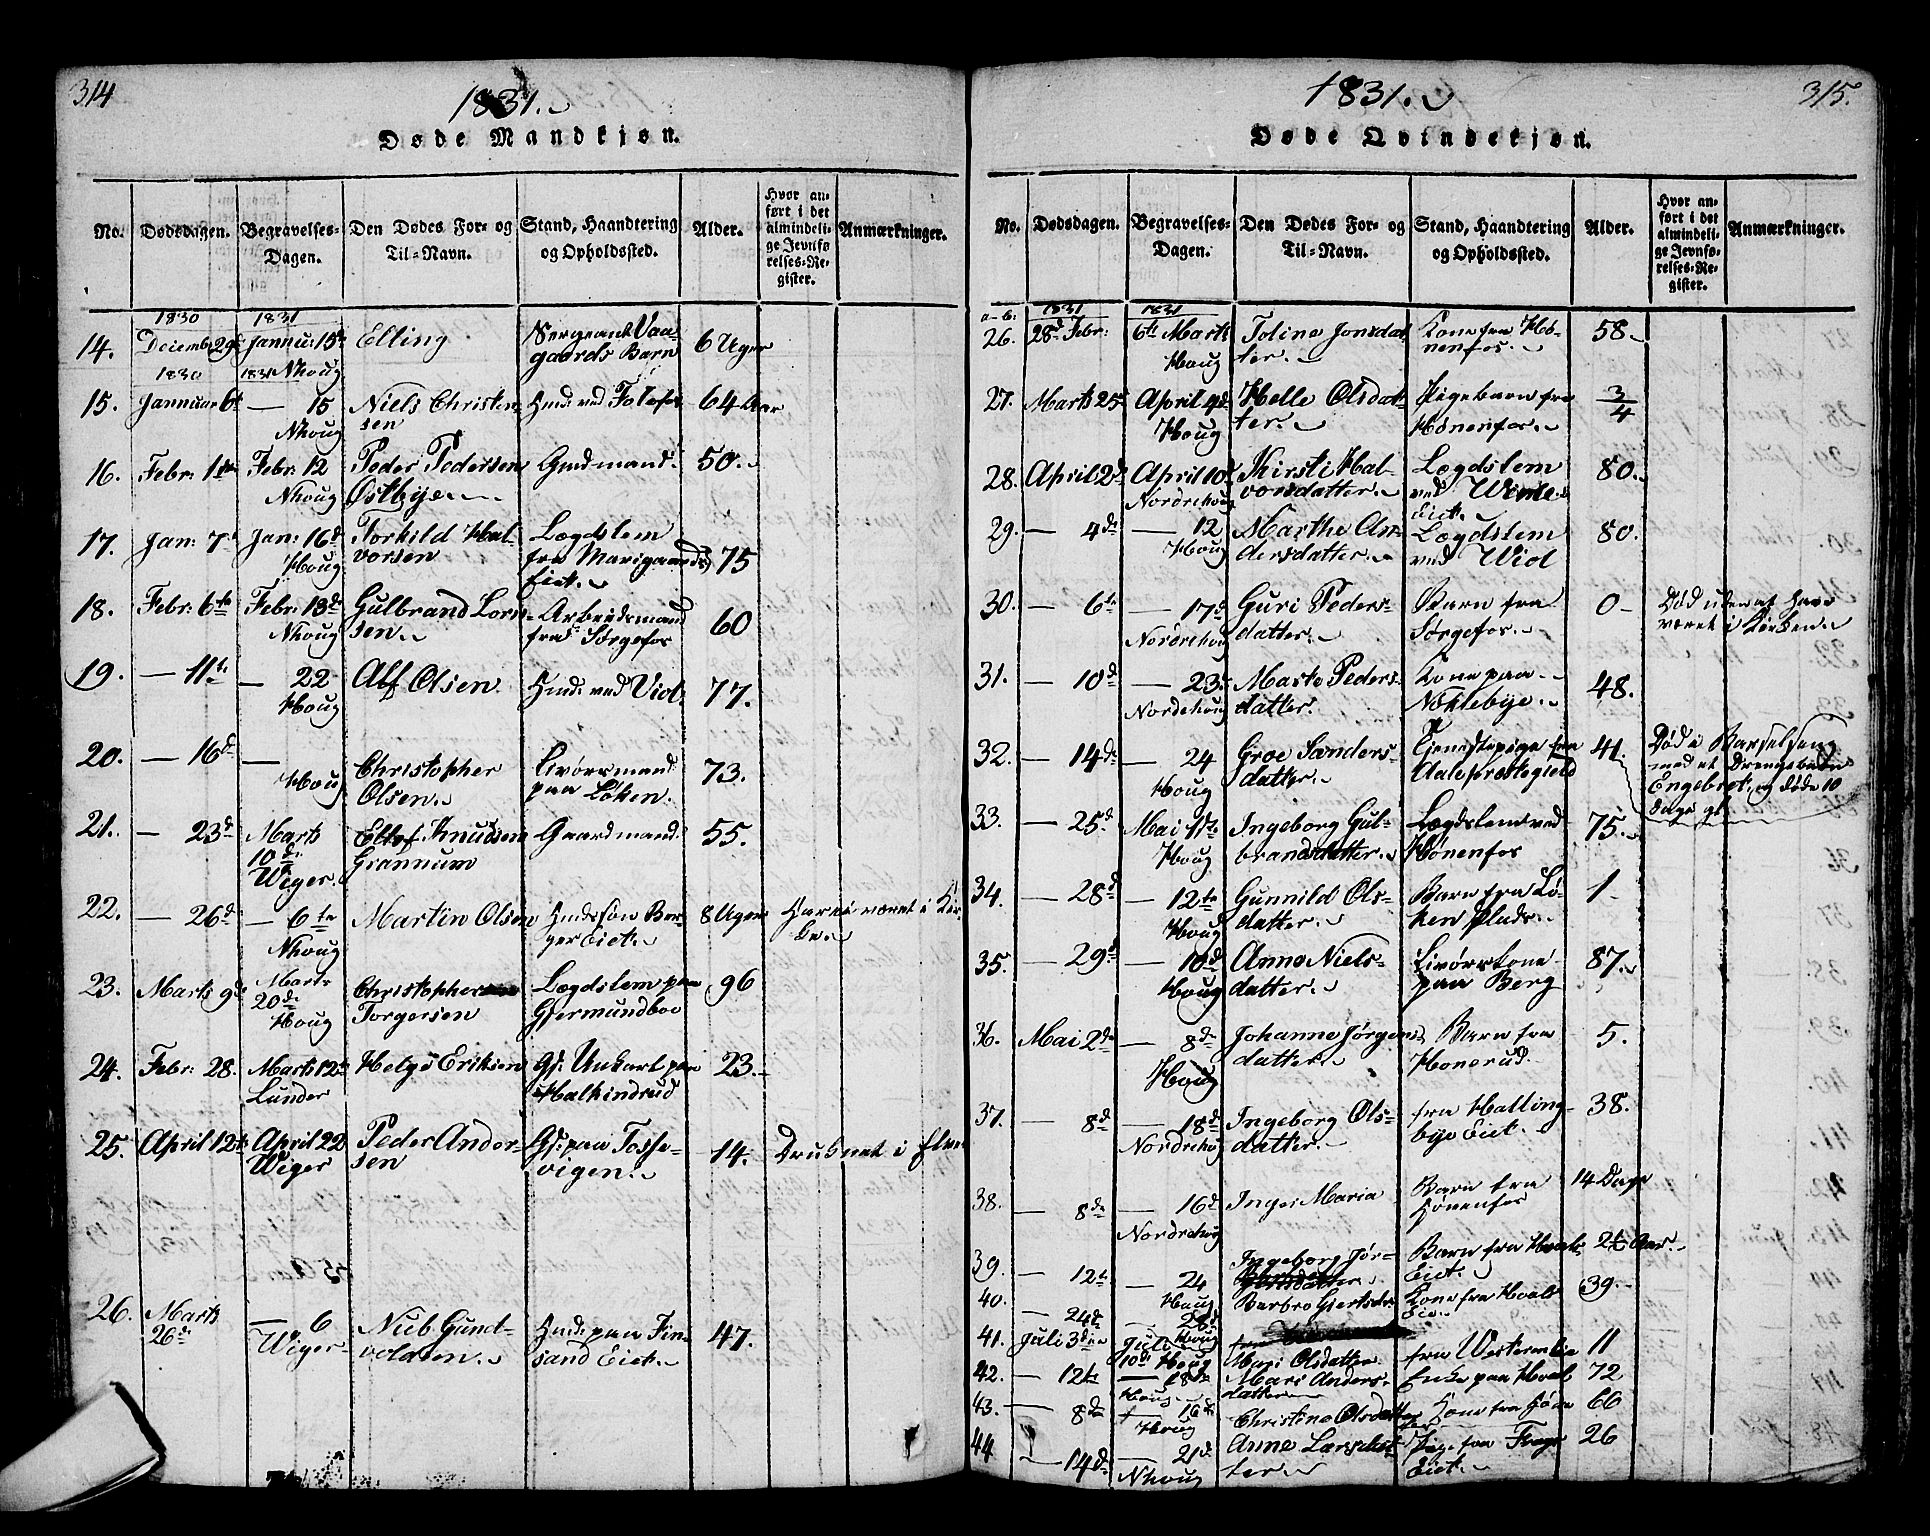 314
1831.
Døde Mandkjøn.
No.
Dødsdagen.
Begravelses-
Dagen.
Den Dødes For- og
Til-Navn.
Stand, Haandtering
og Opholdssted.
Alder.
Hvor an-
ført i det
almindeli-
ge Jevnfø-
relses-Re-
gister.
Anmærkninger.
1830 1831
14. Decembr 29 Jannu: 15de Elling Sergeant Vaa-
gaards Barn 6 Uger
1830 1831 Nhoug
15. Jannuar 6te — 15 Niels Christen-
sen Hmd: ved Follefos 64 Aar
Nhoug
16. Febr: 1te Febr: 12 Peder Pedersen Grdmand 50.
Nhoug Østbye.
17. Jan: 7de Jan: 16de Torkild Hal-
vorsen Lægdslem
Houg fra Marigaards
Eiet. 75
18. Febr: 6te Febr: 13de Gulbrand Lars-
sen. Arbeidsmand
Nhoug fra Sørgefos 60
19. — 11te — 22 Alf Olsen Hmd: ved Viol. 77.
Houg
20. — 16de —
Houg Christopher
Olsen. Livørsmand
paa Løken. 73.
21. — 23de Marts
10de
Wiger. Ellef Knudsen
Grannum Gaardmand. 55.
22. — 26de — 6te
Nhoug Martin Olsen Hmds søn Ber-
ger Eiet. 8 Uger Har ei været i Kir-
ken.
23. Marts 9de Marts
20de
Houg Christopher
Torgersen Lægdslem paa
Gjermundboe 96
24. Febr: 28. Marts 12te
Lunder Helge Eriksen Gs: Unkart paa
Halkindrud 23.
25. April 12te April 22
Wiger Peder Ander-
sen Gs: paa Tosse-
vigen. 14. Druknet i Elven
26. Marts
26de — 6
Wiger Niels Gund-
voldsen. Hmd: paa Fin-
sand Eiet. 47.
315.
1831.
Døde Qvindekjøn.
No.
Dødsdagen.
Begravelses-
Dagen.
Den Dødes For- og
Til-Navn.
Stand, Haandtering
og Opholdssted.
Alder.
Hvor an-
ført i det
almindeli-
ge Jevnfø-
relses-Re-
gister.
Anmærkninger.
1831 1831
26. 28de Febr: 6te Marts
Houg Toline Jonsdat-
ter. Kone fra Hø-
nenfos. 58.
27. Marts 25de April 4de
Houg Helle Olsdat-
ter. Pigebarn fra
Hønenfos. 3/4
28. April 2de April 10de
Nordrehoug Kirsti Hal-
vorsdatter. Lægdslem
ved
Eiet. 80.
29. — 4de — 12
Houg Marthe An-
dersdatter. Lægdslem
ved Wiol 80.
30. — 6te — 17de
Nordrehoug Guri Peders-
datter. Barn fra
Sørgefos. 0 Død uden at have
været i Kirken.
31. — 10de — 23de
Nordrehoug Marte Peders-
datter. Kone paa
Nøklebye. 48.
32. — 14de — 24
Houg Groe Sanders-
datter. Tjenestepige fra
Aals Præstegield 41. Død i Barselseng
med et Drengebarn
Engebret og døde 10
Dage gl:
33. — 25de Mai 11te
Houg Ingeborg Gul-
brandsdatter. Lægdslem ved
Hønenfos 75.
34. — 28de — 12te
Houg Gunnild Ols-
datter. Barn fra Lø-
ken Plads. 1
35. — 29de — 10de
Houg Anne Niels-
datter. Livørskone
paa Berg 87.
36. Mai 2de — 8de
Houg Johanne Jørgens
datter. Barn fra
Honerud. 5.
37. — 8de — 18de
Nordrehoug Ingeborg Ols-
datter. fra Halling-
bye Eiet. 38.
38. — 8de — 16de
Nordrehoug Inger Maria Barn fra
Hønenfos 14 Dage
39. — 12te — 24
Houg Ingeborg Jør-
Barn fra Hval-
Eiet. 2½ Aar.
40. — 24de — 28de
Houg Barbro Giertsdr Kone fra Hval
Eie. 39.
41. Juli 3die Juli
10de Houg Mari Olsdatter fra Westernbie 11
42. — 12te — 18de
Houg Mari Anders-
datter Enke paa Hval 72
43. 8de 16de
Houg Christine Olsdatter Kone fra 66
44 — 14de — 21de
Nhoug Anne Larsdat-
ter. Pige fra
Eiet. 26